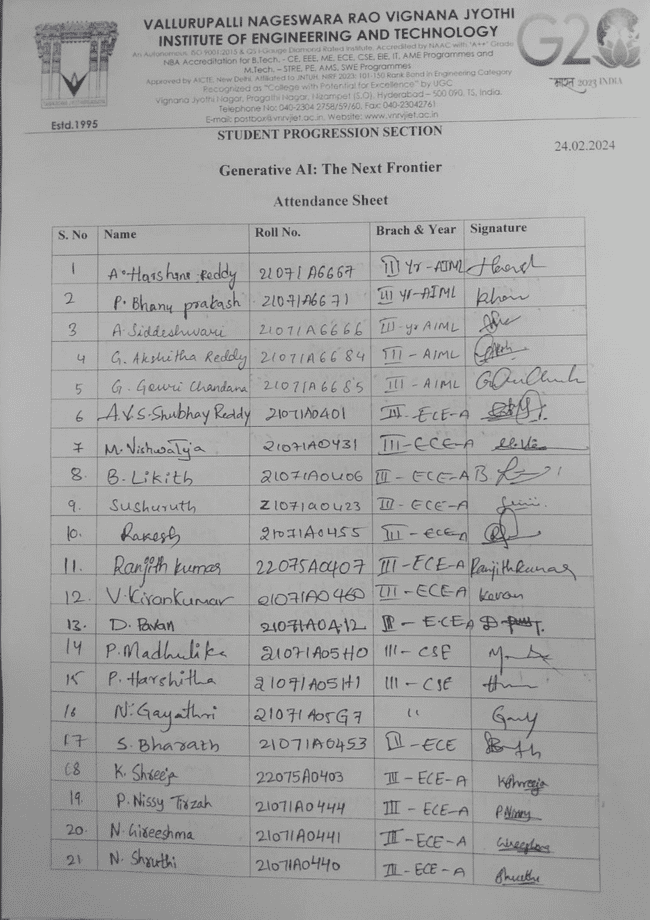 VALLURUPALLI NAGESWARA RAO VIGNANA JYOTHI
INSTITUTE OF ENGINEERING AND TECHNOLOGY
An Autonomous, ISO 9001:2015 & QS I-Gauge Diamond Rated Institute, Accredited by NAAC with 'A++' Grade
NBA Accreditation for B.Tech. - CE, EEE, ME, ECE, CSE, EIE, IT, AME Programmes and
M.Tech. – STRE, PE, AMS, SWE Programmes
Approved by AICTE, New Delhi, Affiliated to JNTUH, NIRF 2023: 101-150 Rank Band in Engineering Category
Recognized as "College with Potential for Excellence" by UGC
Vignana Jyothi Nagar, Pragathi Nagar, Nizampet (S.O), Hyderabad – 500 090, TS, India.
Telephone No: 040-2304 2758/59/60, Fax: 040-23042761
E-mail: postbox@vnrvjiet.ac.in, Website: www.vnrvjiet.ac.in
G20
भारत 2023 INDIA
Estd.1995
STUDENT PROGRESSION SECTION
24.02.2024
Generative AI: The Next Frontier
Attendance Sheet
S. No Name Roll No. Brach & Year Signature
1 A. Harshini Reddy 21071A6667 III Yr-AIML
2 P. Bhanu prakash 21071A6671 III yr-AIML
3 A. Siddeshwari 21071A6666 III-yr AIML
4 G. Akshitha Reddy 21071A6684 III - AIML
5 G. Gouri Chandana 21071A6685 III - AIML
6 A.V.S. Shubhay Reddy 21071A0401 III-ECE-A
7 M. Vishwateja 21071A0431 III-ECE-A
8. B. Likith 21071A0406 III - ECE-A B.
9. Sushuruth 21071a0423 III - ECE-A
10. Rakesh 21071A0455 III - ECE-A
11. Ranjith kumar 22075A0407 III-ECE-A Ranjithkumar
12. V. Kirankumar 21071A0460 III-ECE-A
13. D. Pavan 21071A0412 III - ECE A
14 P. Madhulika 21071A05H0 III - CSE
15 P. Harshitha 21071A05H1 III - CSE
16 N. Gayathri 21071A05G7 "
17 S. Bharath 21071A0453 III - ECE
18 K. Shreeja 22075A0403 III - ECE-A KShreeja
19. P. Nissy Tirzah 21071A0444 III - ECE-A P Nissy
20. N. Gireeshma 21071A0441 III - ECE-A Gireeshma
21 N. Shruthi 21071A0440 III - ECE-A Shruthi